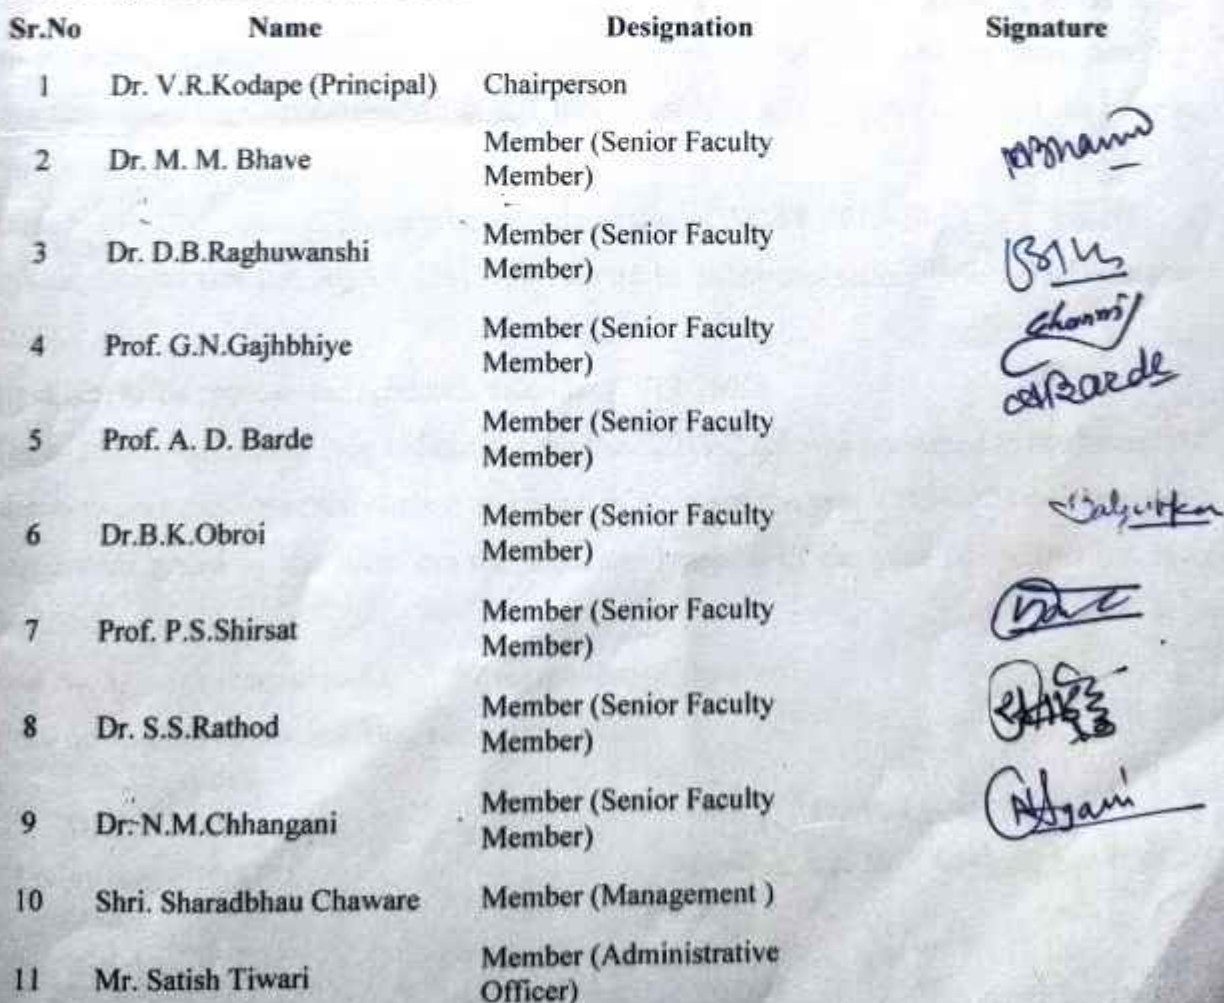 Sr.No Name Designation Signature
1 Dr. V.R.Kodape (Principal) Chairperson
2 Dr. M. M. Bhave Member (Senior Faculty
Member)
3 Dr. D.B.Raghuwanshi Member (Senior Faculty
Member)
4 Prof. G.N.Gajhbhiye Member (Senior Faculty
Member)
ABarde
5 Prof. A. D. Barde Member (Senior Faculty
Member)
6 Dr.B.K.Obroi Member (Senior Faculty
Member)
7 Prof. P.S.Shirsat Member (Senior Faculty
Member)
8 Dr. S.S.Rathod Member (Senior Faculty
Member)
9 Dr. N.M.Chhangani Member (Senior Faculty
Member)
10 Shri. Sharadbhau Chaware Member (Management )
11 Mr. Satish Tiwari Member (Administrative
Officer)